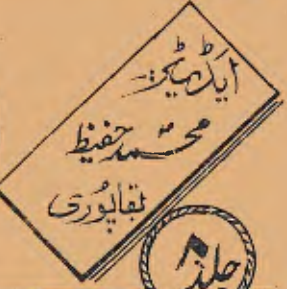 ایڈیٹر:-
محمد حفیظ
بقاپوری
جلد ۸